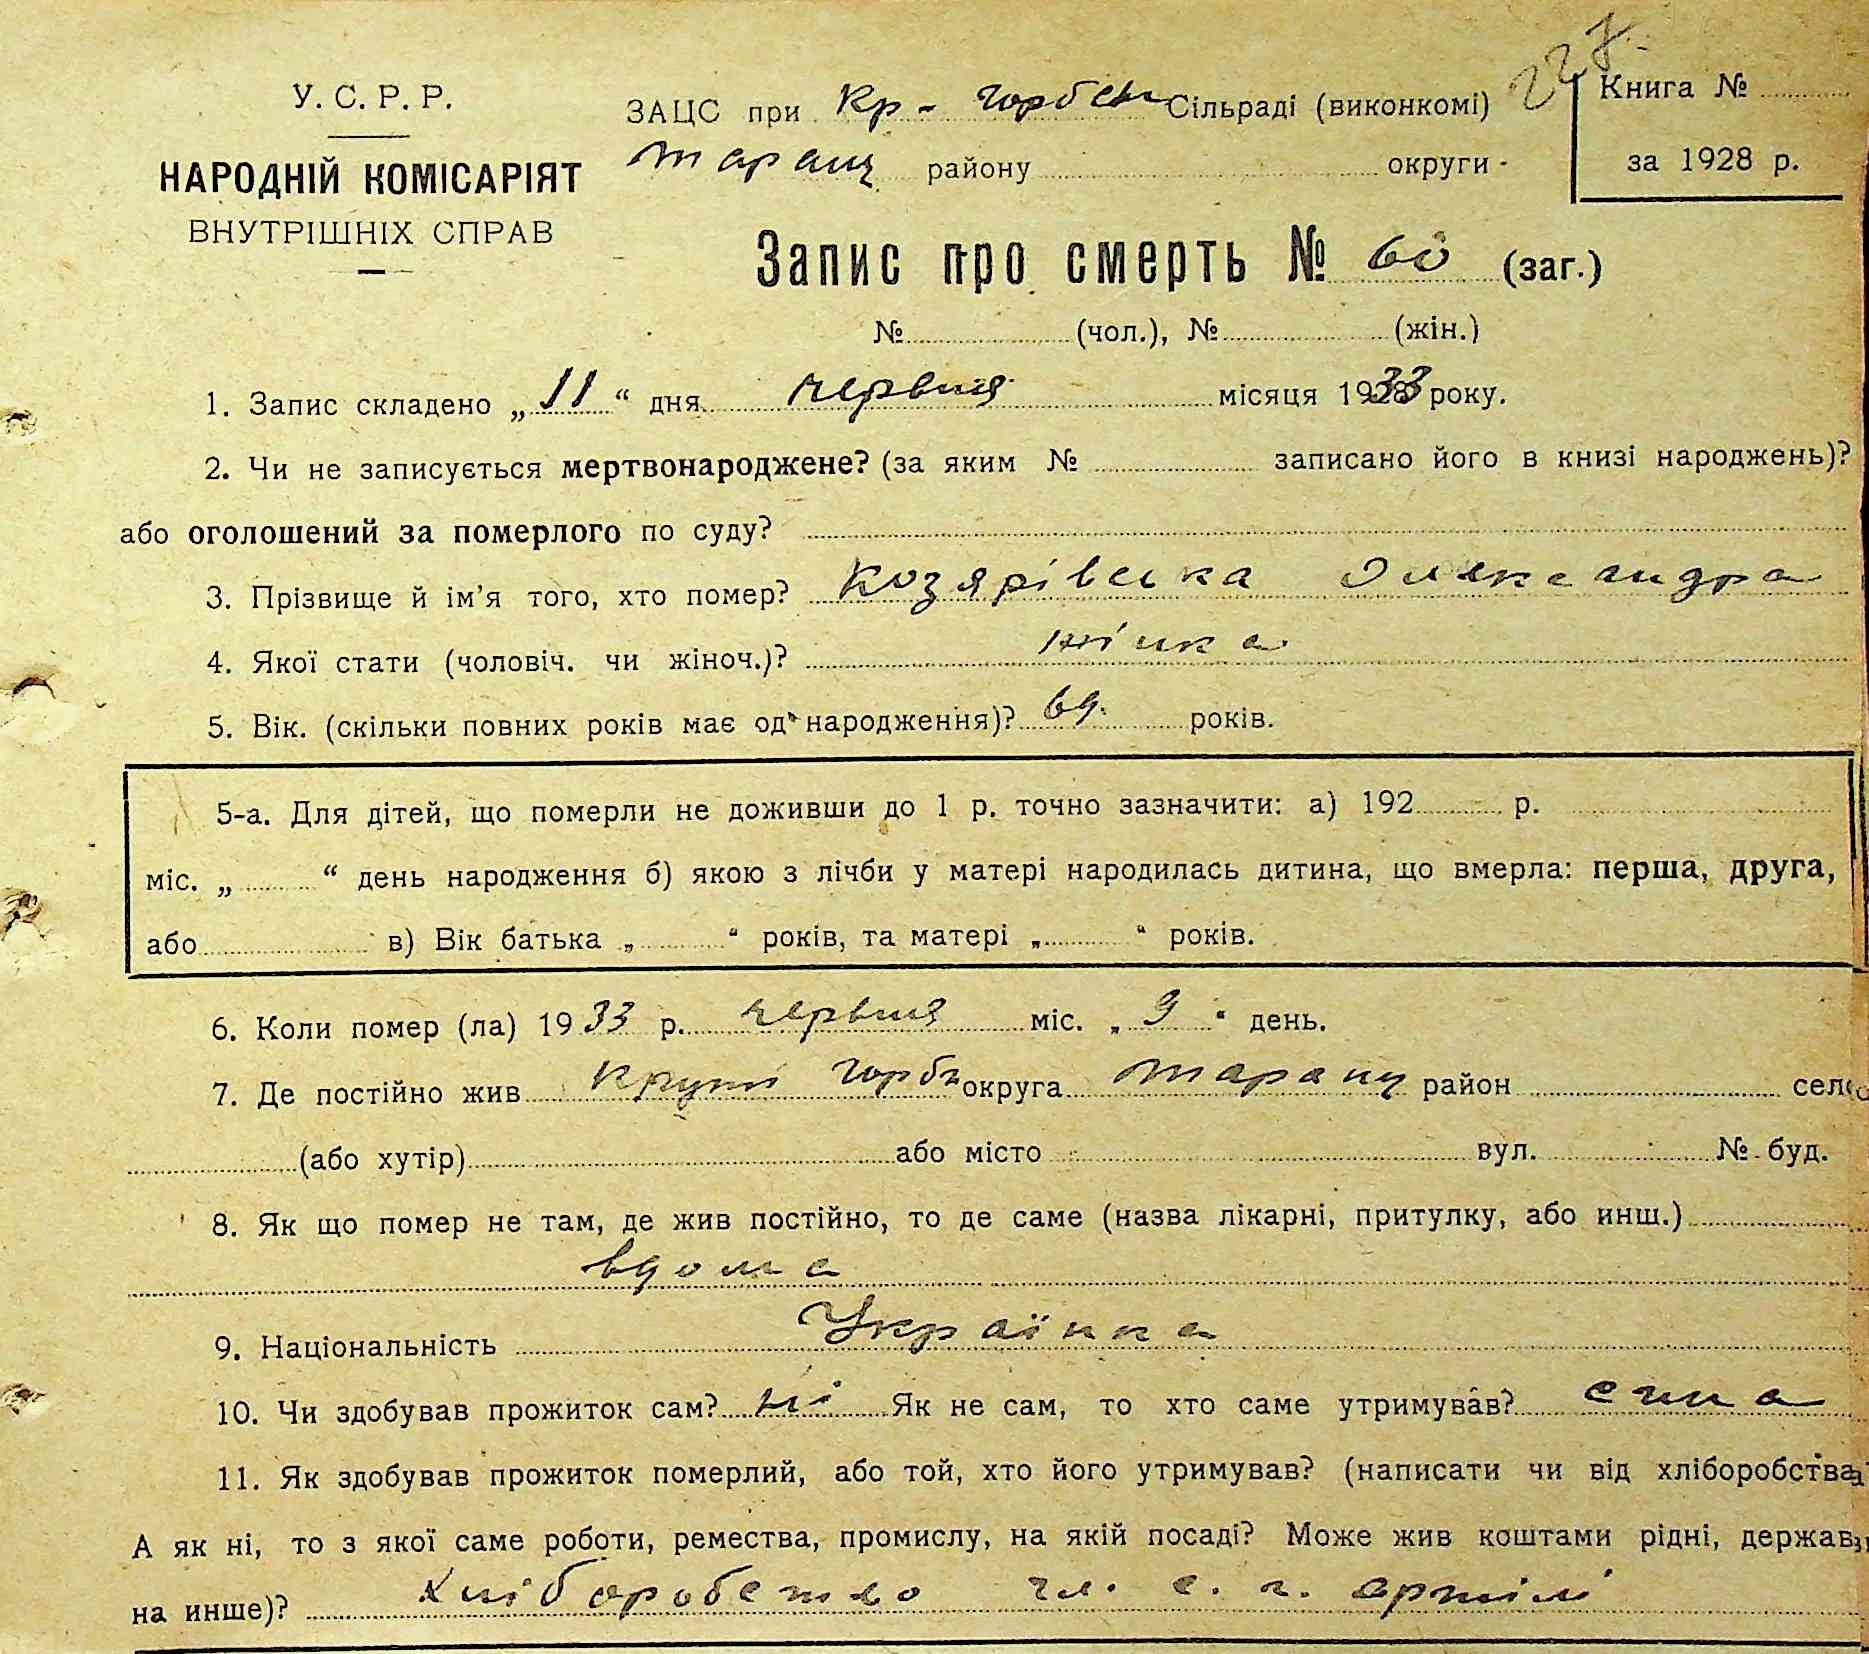 227.
У. С. Р. Р.
НАРОДНІЙ КОМІСАРІЯТ
ВНУТРІШНІХ СПРАВ
ЗАЦС при Кр - Горбен Сільраді (виконкомі)
Таращ району округи
Книга №
за 1928 р.
Запис про смерть № 60 (заг.)
№ (чол.), № (жін.)
1. Запис складено „11“ дня червня місяця 1933 року.
2. Чи не записується мертвонароджене? (за яким № записано його в книзі народжень)?
або оголошений за померлого по суду?
3. Прізвище й ім’я того, хто помер? Козярівська Олександра
4. Якої стати (чоловіч. чи жіноч.)? жінка
5. Вік. (скільки повних років має од народження)? 69. років.
5-а. Для дітей, що померли не доживши до 1 р. точно зазначити: а) 192 р.
міс. „ “ день народження б) якою з лічби у матері народилась дитина, що вмерла: перша, друга,
або в) Вік батька „ “ років, та матері „ “ років.
6. Коли помер (ла) 1933 р. червня міс. „9“ день.
7. Де постійно жив Круті Горби округа Таращ район село
(або хутір) або місто вул. № буд.
8. Як що помер не там, де жив постійно, то де саме (назва лікарні, притулку, або инш.)
вдома
9. Національність Українка
10. Чи здобував прожиток сам? ні Як не сам, то хто саме утримував? сина
11. Як здобував прожиток померлий, або той, хто його утримував? (написати чи від хліборобства
А як ні, то з якої саме роботи, ремества, промислу, на якій посаді? Може жив коштами рідні, держав
на инше)? хліборобство чл. с. г. артілі